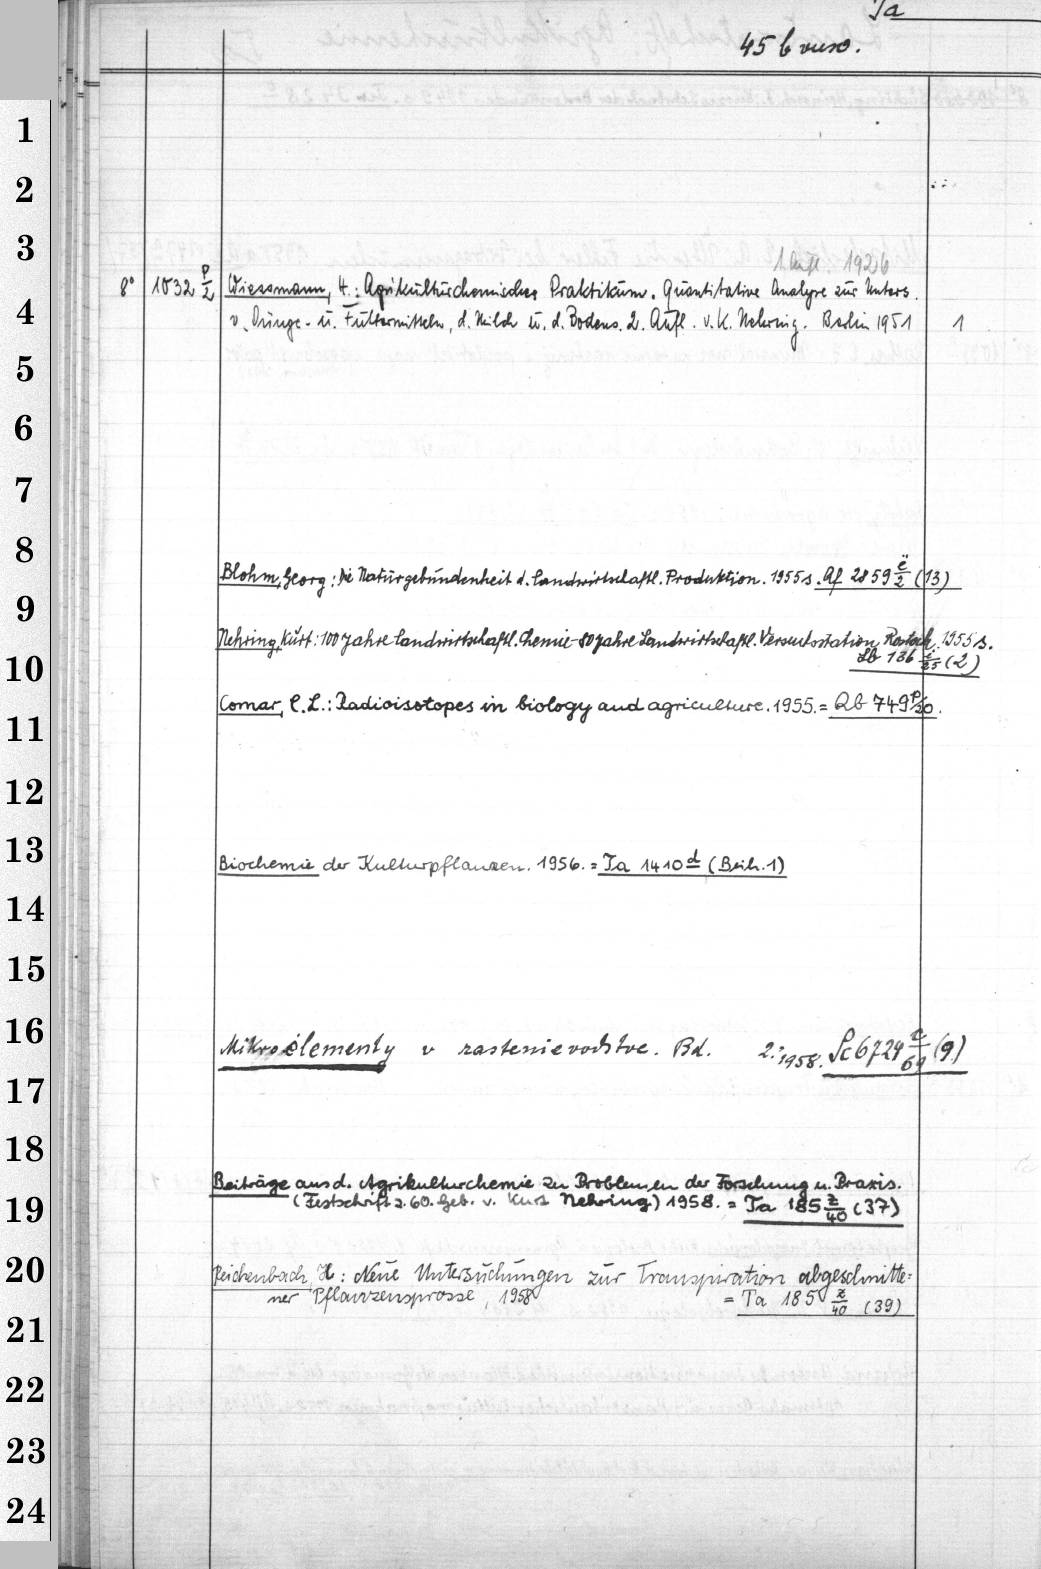 Ta
45 b verso.
1. Aufl. 1926
8° 1032 p/2 Wiessmann, H.: Agrikulturchemisches Praktikum. Quantitative Analyse zur Unters.
v. Dünge- u. Futtermitteln, d. Milch u. d. Bodens. 2. Aufl. v. K. Nehring. Berlin 1951 1
Blohm, Georg: Die Naturgebundenheit d. landwirtschaftl. Produktion. 1955 s. Af 2859 c̈/2 (13)
Nehring, Kurt: 100 Jahre landwirtschaftl. Chemie - 80 Jahre Landwirtschaftl. Versuchsstation Rostock. 1955 s.
Lb 136 i/25 (2)
Comar, C.L.: Radioisotopes in biology and agriculture. 1955. = Qb 749 p/20.
Biochemie der Kulturpflanzen. 1956. = Ta 1410 d (Beih. 1)
Mikroėlementy v rastenievodstve. Bd. 2. 1958. Sc 6724 c/69 (9)
Beiträge aus d. Agrikulturchemie zu Problemen der Forschung u. Praxis.
(Festschrift z. 60. Geb. v. Kurt Nehring) 1958. = Ta 185 z/40 (37)
Reichenbach, H: Neue Untersuchungen zur Transpiration abgeschnitte=
ner Pflanzensprosse, 1958 = Ta 185 z/40 (39)
1
2
3
4
5
6
7
8
9
10
11
12
13
14
15
16
17
18
19
20
21
22
23
24